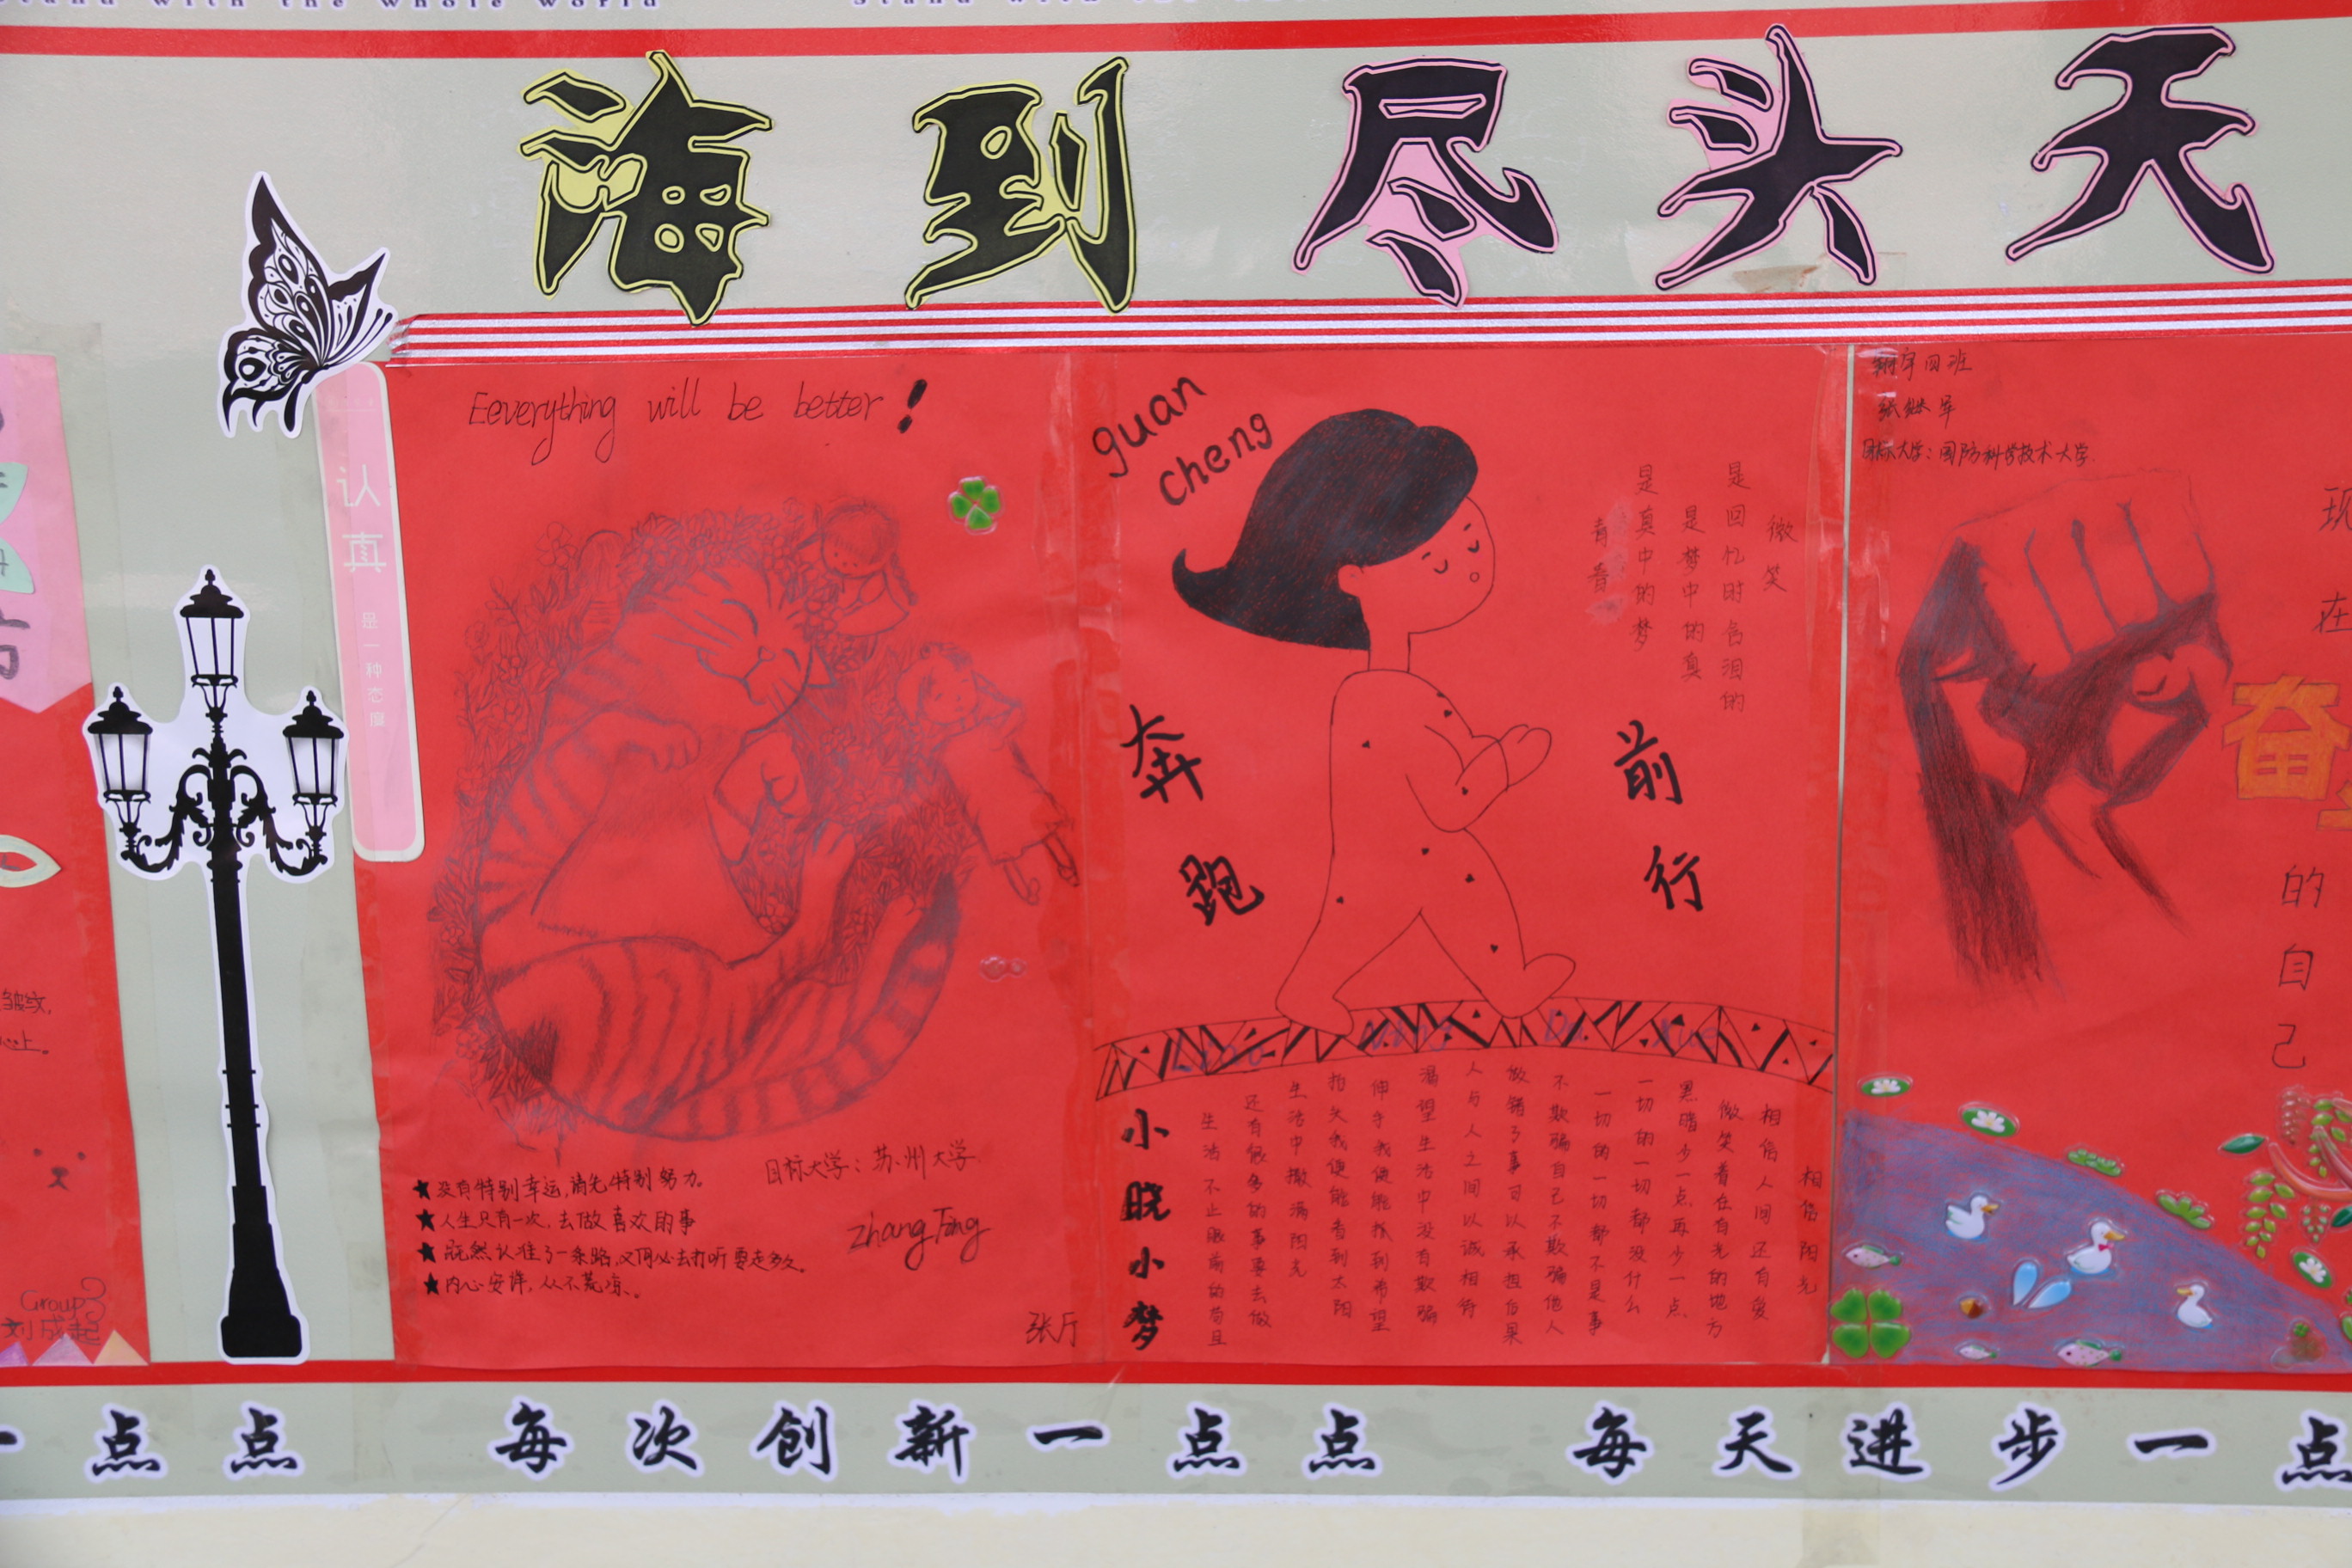 stand with the whole world
海到尽头天
认真
是一种态度
Eeverything will be better!
目标大学：苏州大学
zhang Ting
★没有特别幸运,请先特别努力。
★人生只有一次,去做喜欢的事
★既然认准了一条路,又何必去打听要走多久。
★内心安详,从不荒凉。
张厅
guan
cheng
微笑
是回忆时含泪的
是梦中的真
是真中的梦
青春
奔跑
前行
小晓小梦
相信阳光
相信人间还有爱
微笑着在有光的地方
黑暗少一点再少一点
一切的一切都没什么
一切的一切都不是事
不欺骗自己不欺骗他人
做错了事可以承担后果
人与人之间以诚相待
渴望生活中没有欺骗
伸手我便能抓到希望
抬头我便能看到太阳
生活中撒满阳光
还有很多的事要去做
生活不止眼前的苟且
翔宇四班
张继军
目标大学：国防科学技术大学
现在
奋
的自己
皱纹,
心上。
Group3
刘成起
一点点 每次创新一点点 每天进步一点